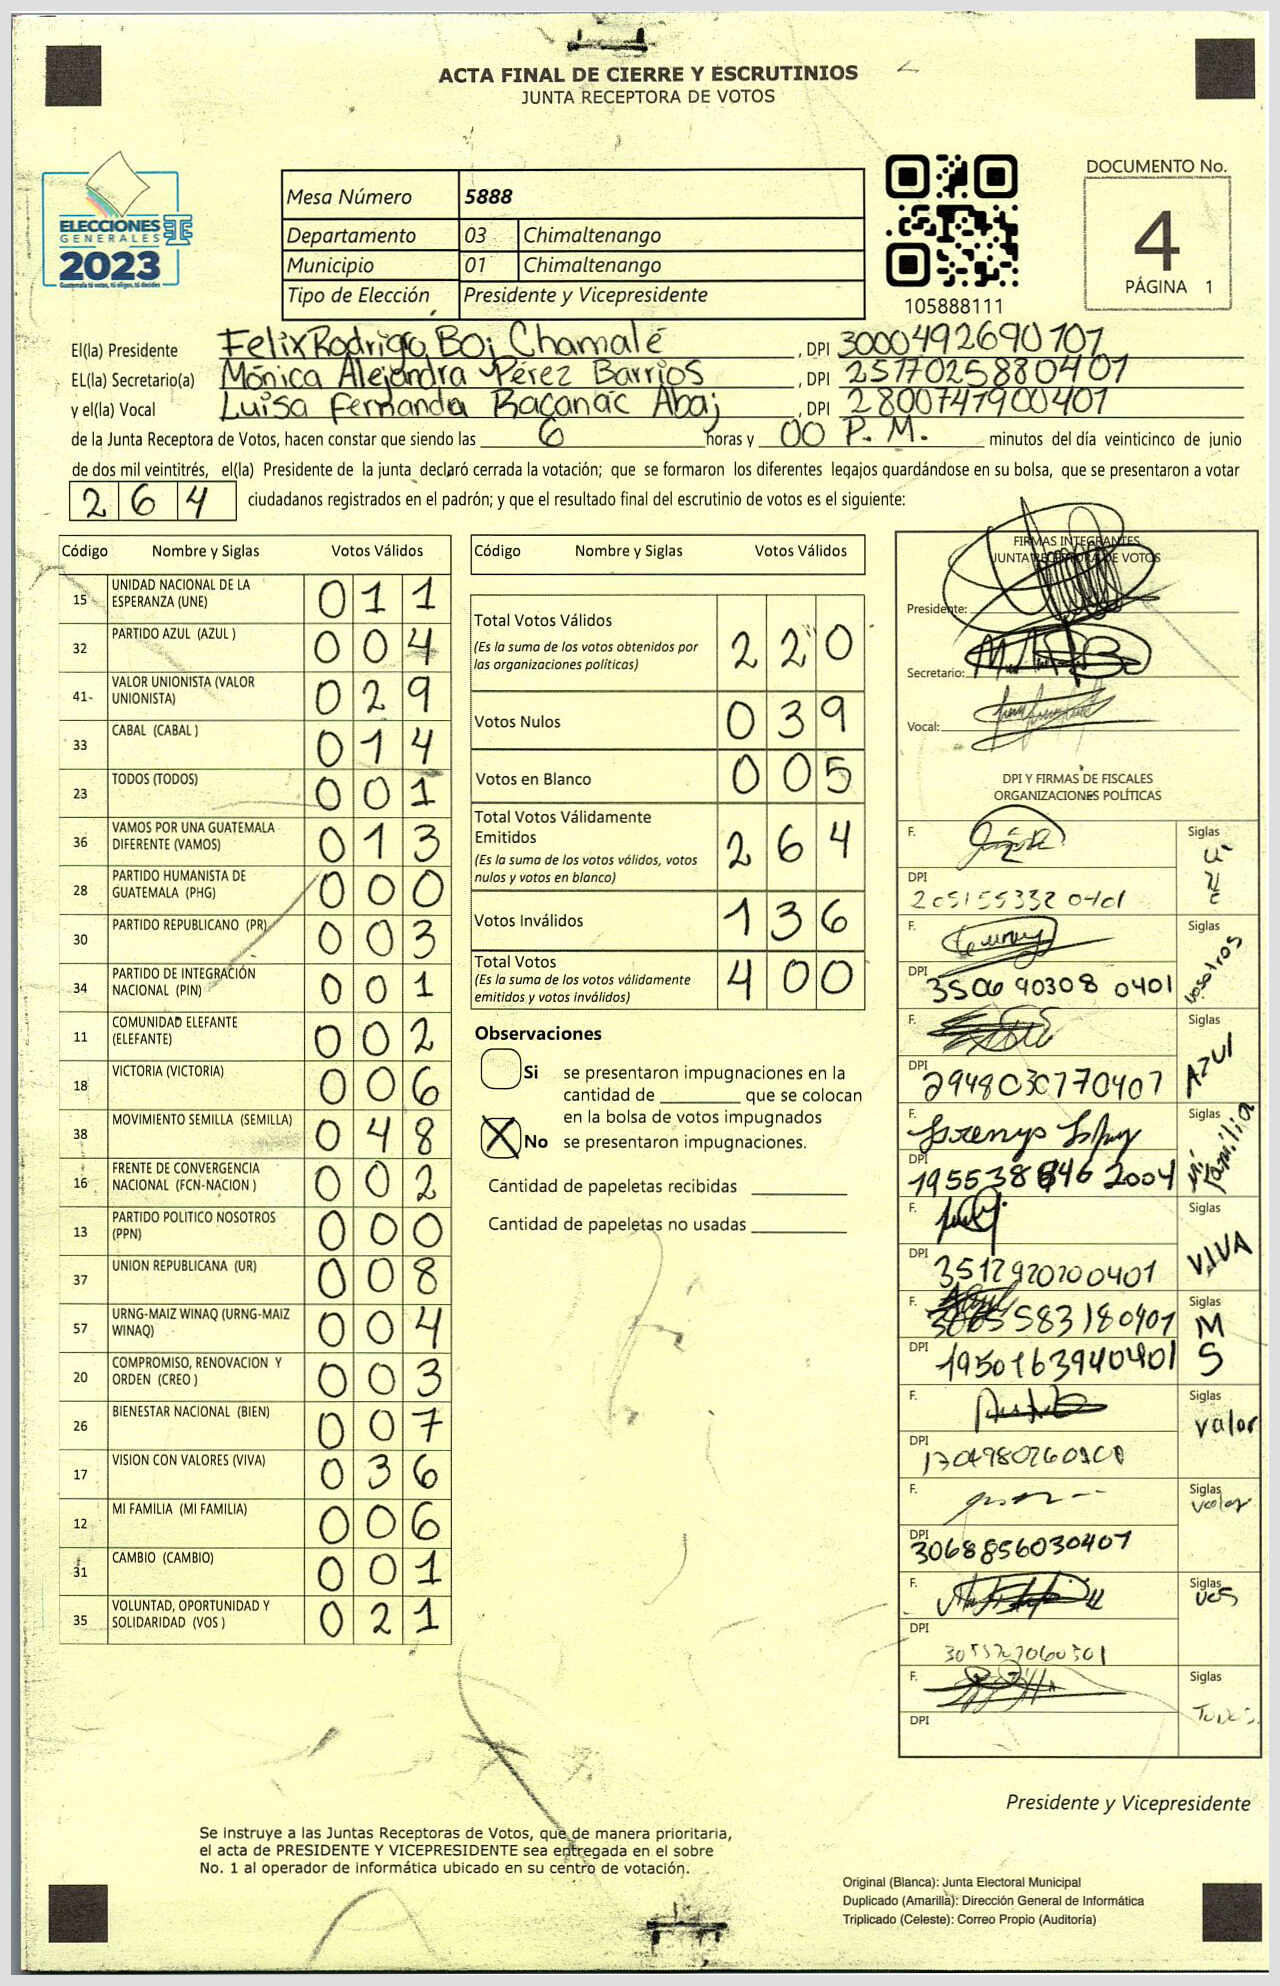 ACTA FINAL DE CIERRE Y ESCRUTINIOS
JUNTA RECEPTORA DE VOTOS
ELECCIONES
GENERALES
2023
Guatemala tú votas, tú eliges, tú decides
Mesa Número 5888
Departamento 03 Chimaltenango
Municipio 01 Chimaltenango
Tipo de Elección Presidente y Vicepresidente
105888111
DOCUMENTO No.
4
PÁGINA 1
El(la) Presidente Felix Rodrigo Boj Chamalé , DPI 3000492690101
EL(la) Secretario(a) Mónica Alejandra Pérez Barrios , DPI 2517025880401
y el(la) Vocal Luisa Fernanda Racanác Abaj , DPI 2800741900401
de la Junta Receptora de Votos, hacen constar que siendo las 6 horas y 00 P.M. minutos del día veinticinco de junio
de dos mil veintitrés, el(la) Presidente de la junta declaró cerrada la votación; que se formaron los diferentes legajos guardándose en su bolsa, que se presentaron a votar
264 ciudadanos registrados en el padrón; y que el resultado final del escrutinio de votos es el siguiente:
Código Nombre y Siglas Votos Válidos
15 UNIDAD NACIONAL DE LA ESPERANZA (UNE) 011
32 PARTIDO AZUL (AZUL ) 004
41- VALOR UNIONISTA (VALOR UNIONISTA) 029
33 CABAL (CABAL ) 014
23 TODOS (TODOS) 001
36 VAMOS POR UNA GUATEMALA DIFERENTE (VAMOS) 013
28 PARTIDO HUMANISTA DE GUATEMALA (PHG) 000
30 PARTIDO REPUBLICANO (PR) 003
34 PARTIDO DE INTEGRACIÓN NACIONAL (PIN) 001
11 COMUNIDAD ELEFANTE (ELEFANTE) 002
18 VICTORIA (VICTORIA) 006
38 MOVIMIENTO SEMILLA (SEMILLA) 048
16 FRENTE DE CONVERGENCIA NACIONAL (FCN-NACION ) 002
13 PARTIDO POLITICO NOSOTROS (PPN) 000
37 UNION REPUBLICANA (UR) 008
57 URNG-MAIZ WINAQ (URNG-MAIZ WINAQ) 004
20 COMPROMISO, RENOVACION Y ORDEN (CREO ) 003
26 BIENESTAR NACIONAL (BIEN) 007
17 VISION CON VALORES (VIVA) 036
12 MI FAMILIA (MI FAMILIA) 006
31 CAMBIO (CAMBIO) 001
35 VOLUNTAD, OPORTUNIDAD Y SOLIDARIDAD (VOS ) 021
Código Nombre y Siglas Votos Válidos
Total Votos Válidos 220
(Es la suma de los votos obtenidos por
las organizaciones políticas)
Votos Nulos 039
Votos en Blanco 005
Total Votos Válidamente
Emitidos 264
(Es la suma de los votos válidos, votos
nulos y votos en blanco)
Votos Inválidos 136
Total Votos 400
(Es la suma de los votos válidamente
emitidos y votos inválidos)
Observaciones
Si se presentaron impugnaciones en la
cantidad de ________ que se colocan
en la bolsa de votos impugnados
X No se presentaron impugnaciones.
Cantidad de papeletas recibidas
Cantidad de papeletas no usadas
FIRMAS INTEGRANTES
JUNTA RECEPTORA DE VOTOS
Presidente:
Secretario:
Vocal:
DPI Y FIRMAS DE FISCALES
ORGANIZACIONES POLÍTICAS
F. Siglas UNE
DPI 205155332 0401
F. Siglas Nosotros
DPI 3506 90308 0401
F. Siglas AZUL
DPI 2948030770407
F. Siglas Mi Familia
DPI
F. Siglas VIVA
DPI 3512920200401
F. Siglas MS
DPI 1950163940401
F. Siglas valor
DPI
F. Siglas Valor
DPI 3068856030401
F. Siglas VOS
DPI
F. Siglas Todos
DPI
Presidente y Vicepresidente
Se instruye a las Juntas Receptoras de Votos, que de manera prioritaria,
el acta de PRESIDENTE Y VICEPRESIDENTE sea entregada en el sobre
No. 1 al operador de informática ubicado en su centro de votación.
Original (Blanca): Junta Electoral Municipal
Duplicado (Amarilla): Dirección General de Informática
Triplicado (Celeste): Correo Propio (Auditoría)